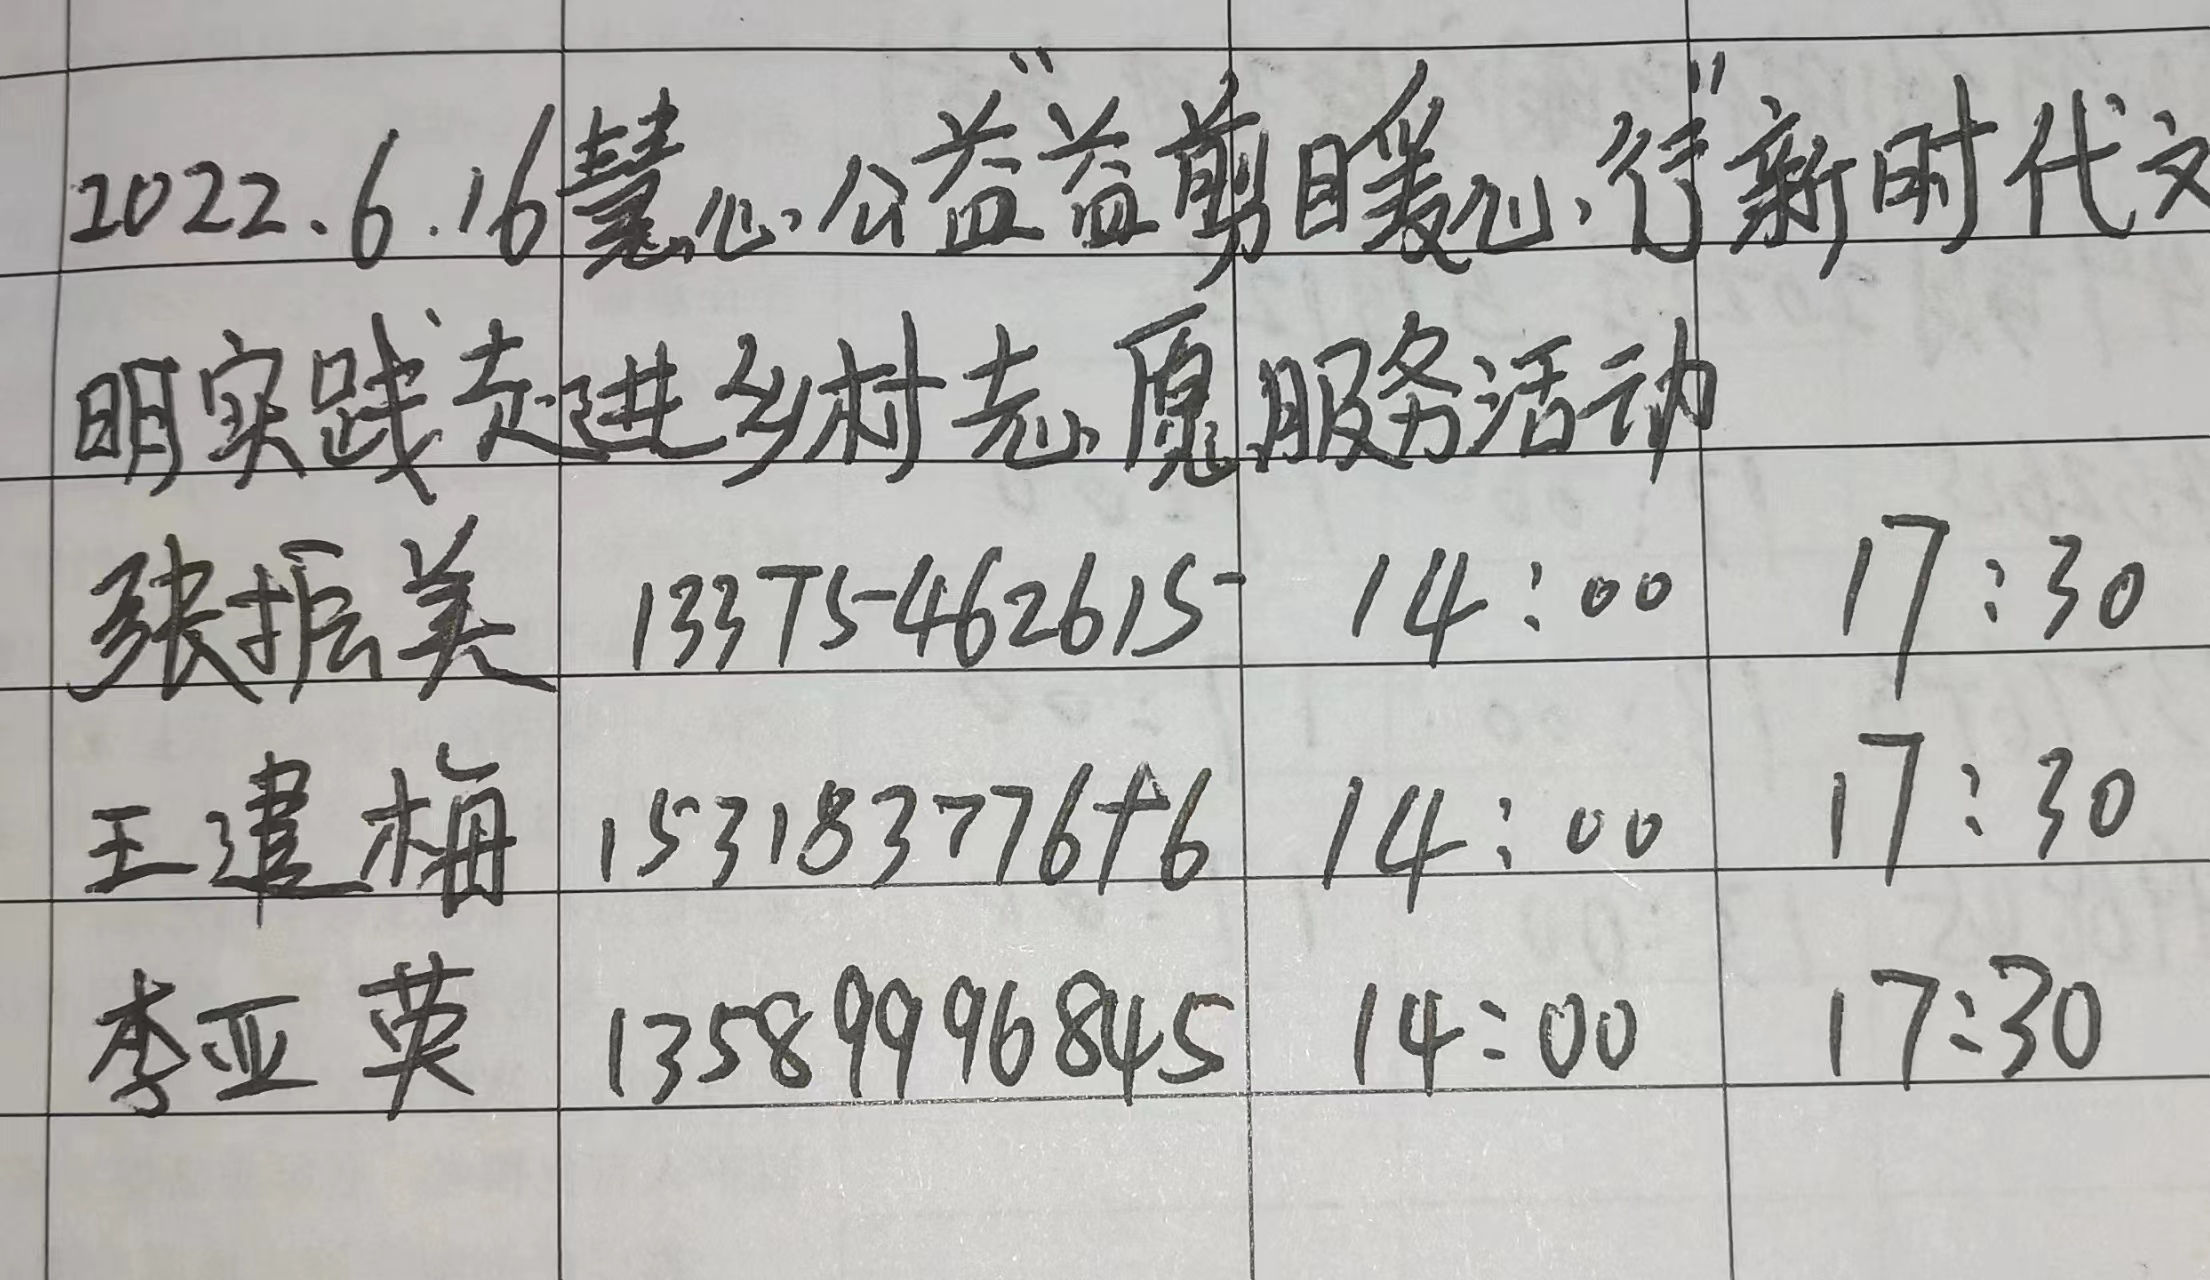 2022.6.16慧心公益“益剪暖心行”新时代文
明实践走进乡村志愿服务活动
张振美 13375462615 14:00 17:30
王建梅 15318377676 14:00 17:30
李亚英 13589996845 14:00 17:30